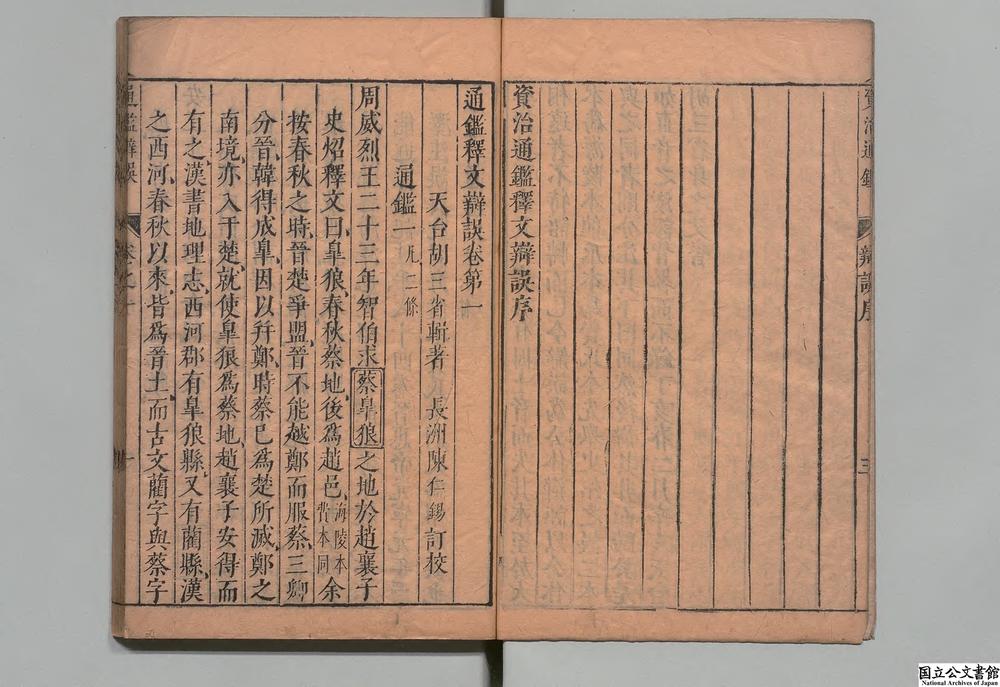 資治通鑑
辨誤序
三
資治通鑑釋文辯誤序
通鑑釋文辯誤卷第一
天台胡三省輯著 長洲陳仁錫訂校
通鑑一 凡二條
周威烈王二十三年智伯求蔡皐狼之地於趙襄子
史炤釋文曰皐狼春秋蔡地後爲趙邑海陵本費本同余
按春秋之時晉楚爭盟晉不能越鄭而服蔡三卿
分晉韓得成皐因以幷鄭時蔡已爲楚所滅鄭之
南境亦入于楚就使皐狼爲蔡地趙襄子安得而
有之漢書地理志西河郡有皐狼縣又有藺縣漢
之西河春秋以來皆爲晉土而古文藺字與蔡字
通鑑辯誤
卷之一
一
国立公文書館
National Archives of Japan